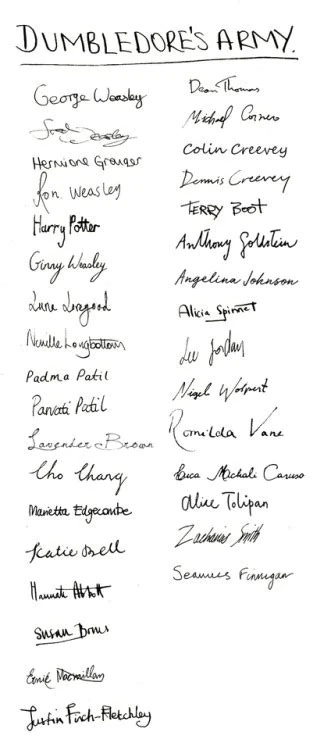 DUMBLEDORE'S ARMY.
George Weasley
Fred Weasley
Hermione Granger
Ron Weasley
Harry Potter
Ginny Weasley
Luna Lovegood
Neville Longbottom
Padma Patil
Parvati Patil
Lavender Brown
Cho Chang
Marietta Edgecombe
Katie Bell
Hannah Abbott
Susan Bones
Ernie Macmillan
Justin Finch-Fletchley
Dean Thomas
Michael Corner
Colin Creevey
Dennis Creevey
TERRY BOOT
Anthony Goldstein
Angelina Johnson
Alicia Spinnet
Lee Jordan
Nigel Wolpert
Romilda Vane
Luca Michali Caruso
Alice Tolipan
Zacharias Smith
Seamus Finnigan